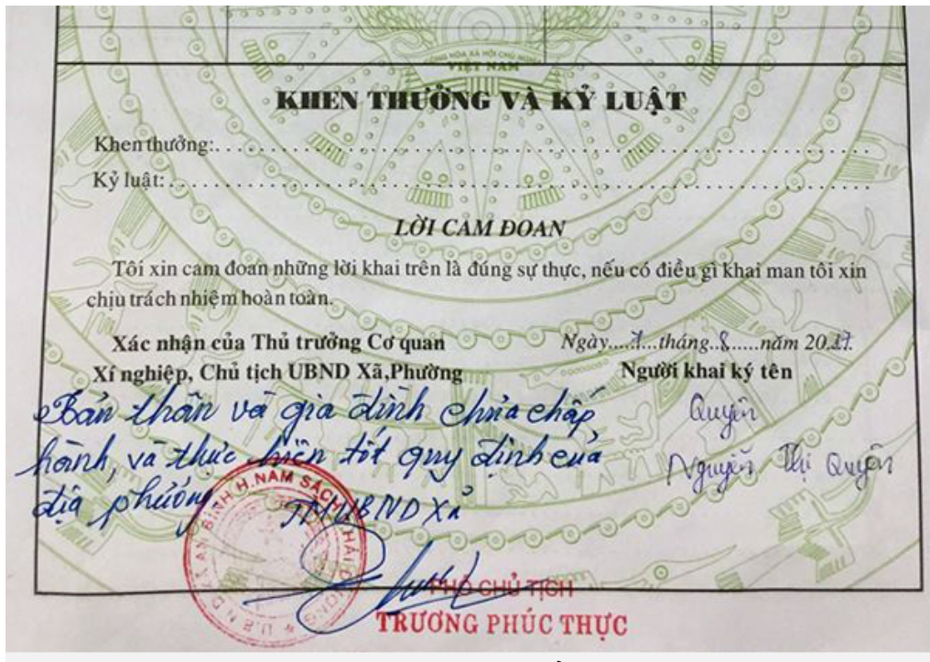 CỘNG HÒA XÃ HỘI CHỦ NGHĨA
VIỆT NAM
KHEN THƯỞNG VÀ KỶ LUẬT
Khen thưởng:
Kỷ luật:
LỜI CAM ĐOAN
Tôi xin cam đoan những lời khai trên là đúng sự thực, nếu có điều gì khai man tôi xin
chịu trách nhiệm hoàn toàn.
Xác nhận của Thủ trưởng Cơ quan
Xí nghiệp, Chủ tịch UBND Xã,Phường
Bản thân và gia đình chưa chấp
hành, và thực hiện tốt quy định của
địa phương.
TM UBND Xã
U.B.N.D X. AN BÌNH H.NAM SÁCH T.HẢI DƯƠNG
PHÓ CHỦ TỊCH
TRƯƠNG PHÚC THỰC
Ngày.....1...tháng..8......năm 20.17.
Người khai ký tên
Quyên
Nguyễn Thị Quyên